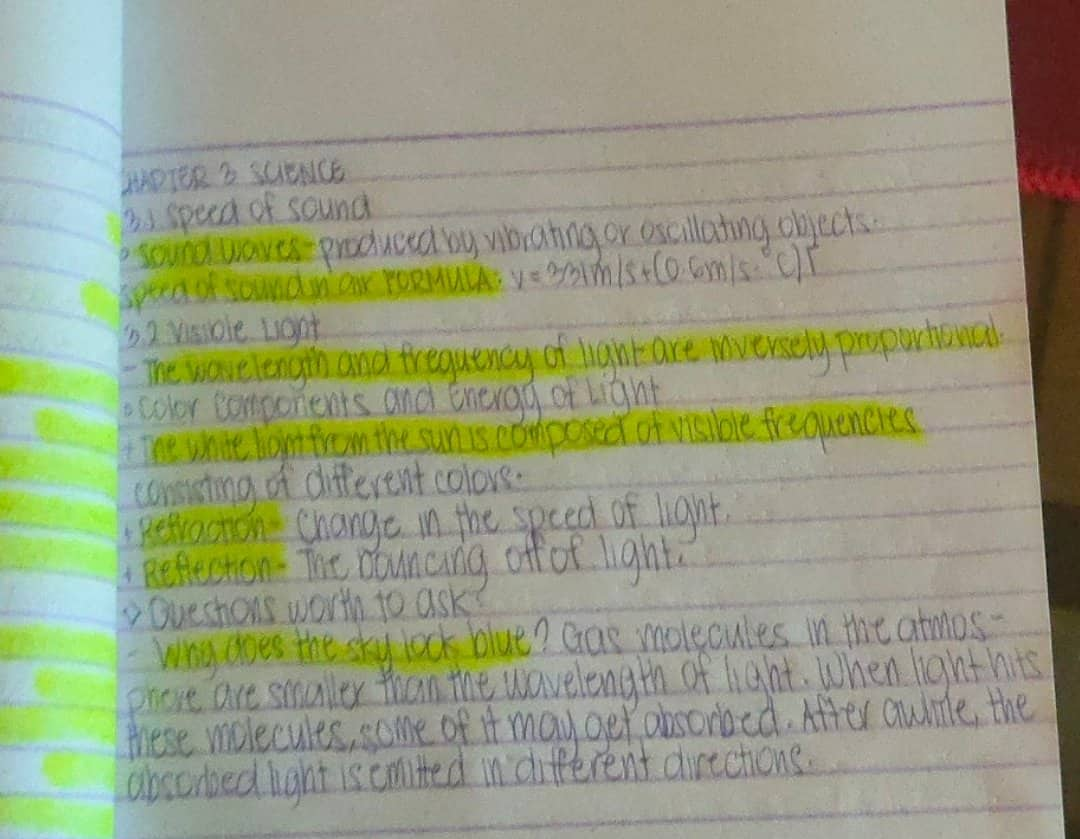 CHAPTER 3 SCIENCE
3.1 Speed of sound
sound waves - produced by vibrating or oscillating objects.
Speed of sound in air FORMULA: v = 331m/s + (0.6m/s·°C)T
3.2 Visible Light
- The wavelength and frequency of light are inversely proportional.
• Color Components and Energy of Light
+ The white light from the sun is composed of visible frequencies
consisting of different colors.
+ Refraction - Change in the speed of light.
+ Reflection - The bouncing off of light.
> Questions worth to ask?
- Why does the sky look blue? Gas molecules in the atmos-
phere are smaller than the wavelength of light. When light hits
these molecules, some of it may get absorbed. After awhile, the
absorbed light is emitted in different directions.